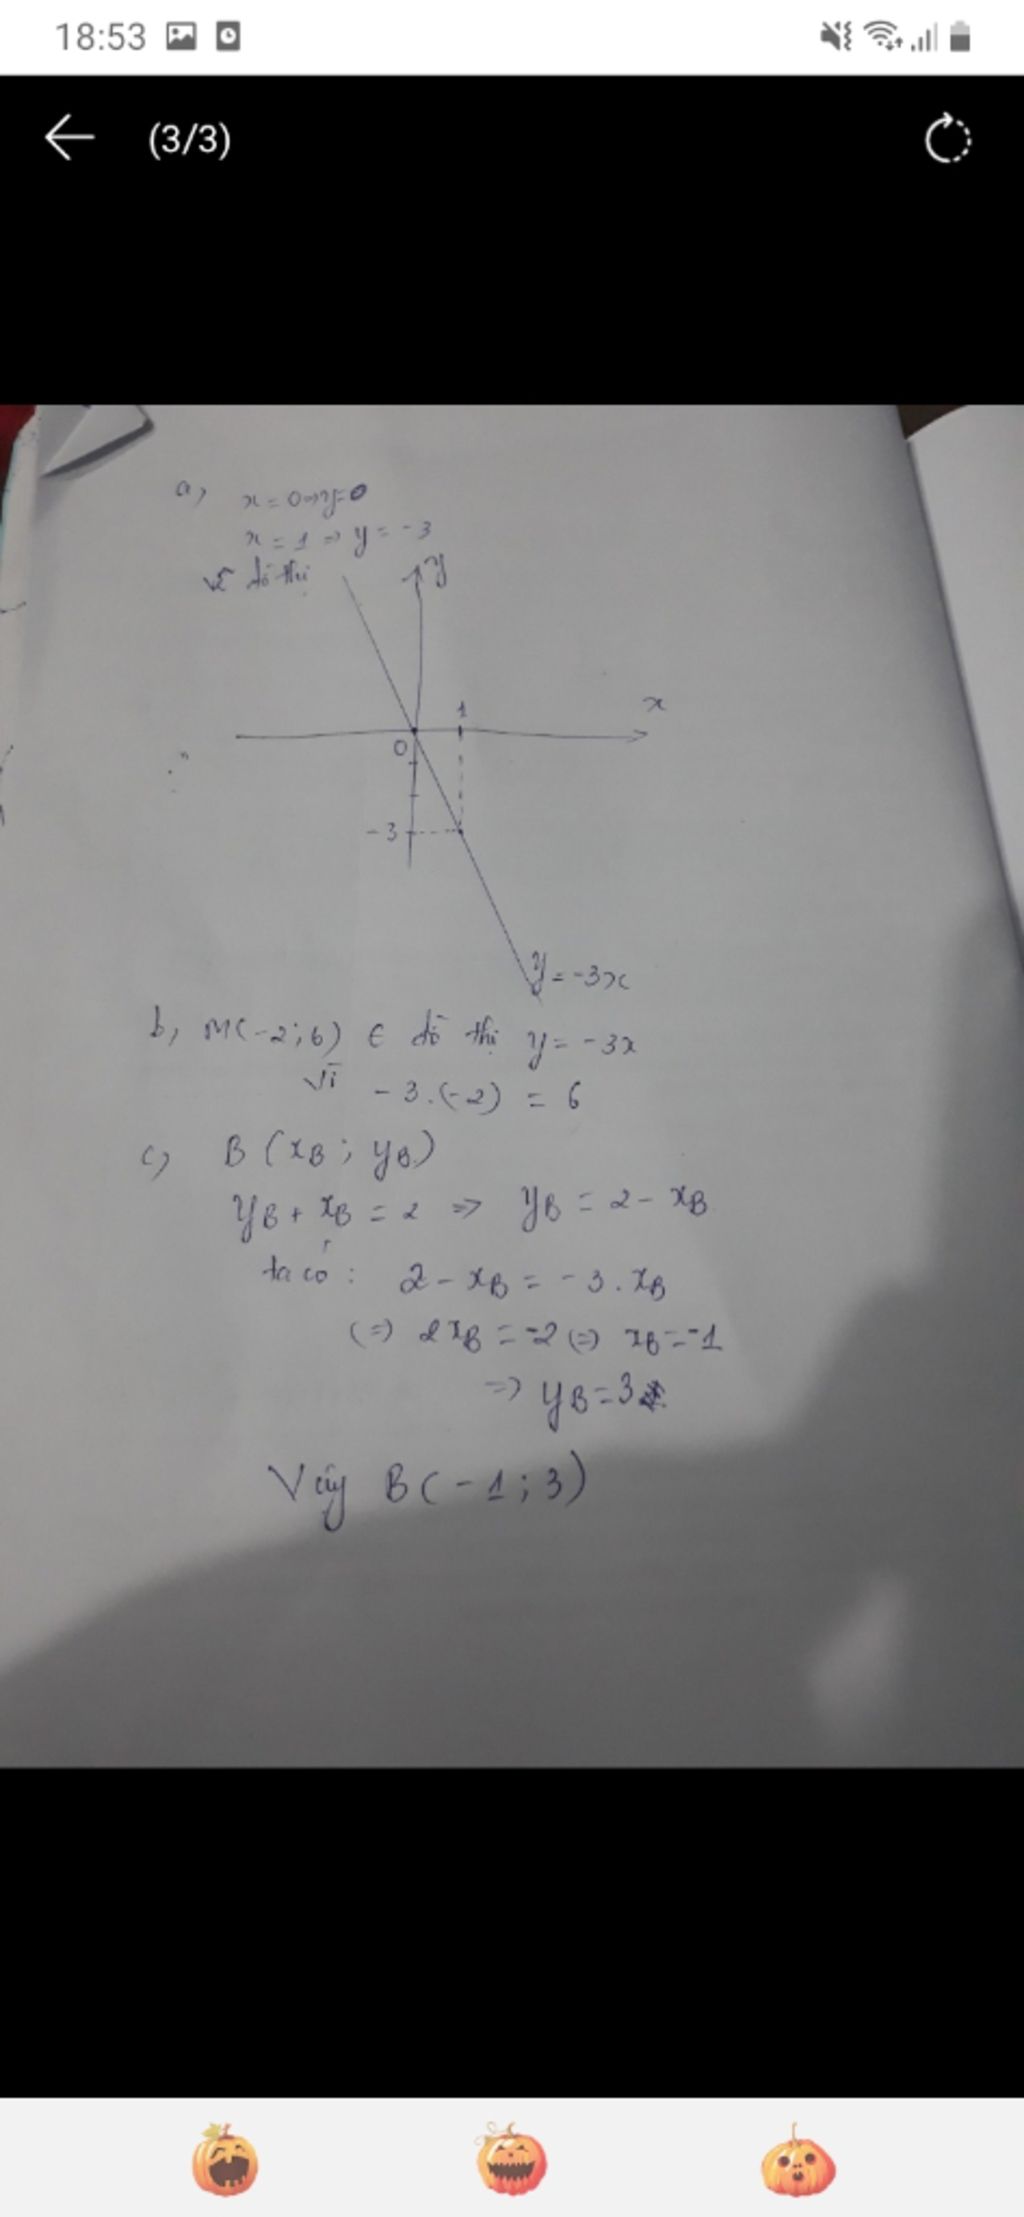 18:53
(3/3)
a, x = 0 => y = 0
x = 1 => y = -3
vẽ đồ thị
y
1
x
0
-3
y = -3x
b, M(-2;6) ∈ đồ thị y = -3x
vì -3.(-2) = 6
c) B (xB ; yB)
yB + xB = 2 => yB = 2 - xB
ta có : 2 - xB = -3 . xB
(=) 2xB = -2 (=) xB = -1
=> yB = 3
Vậy B(-1;3)